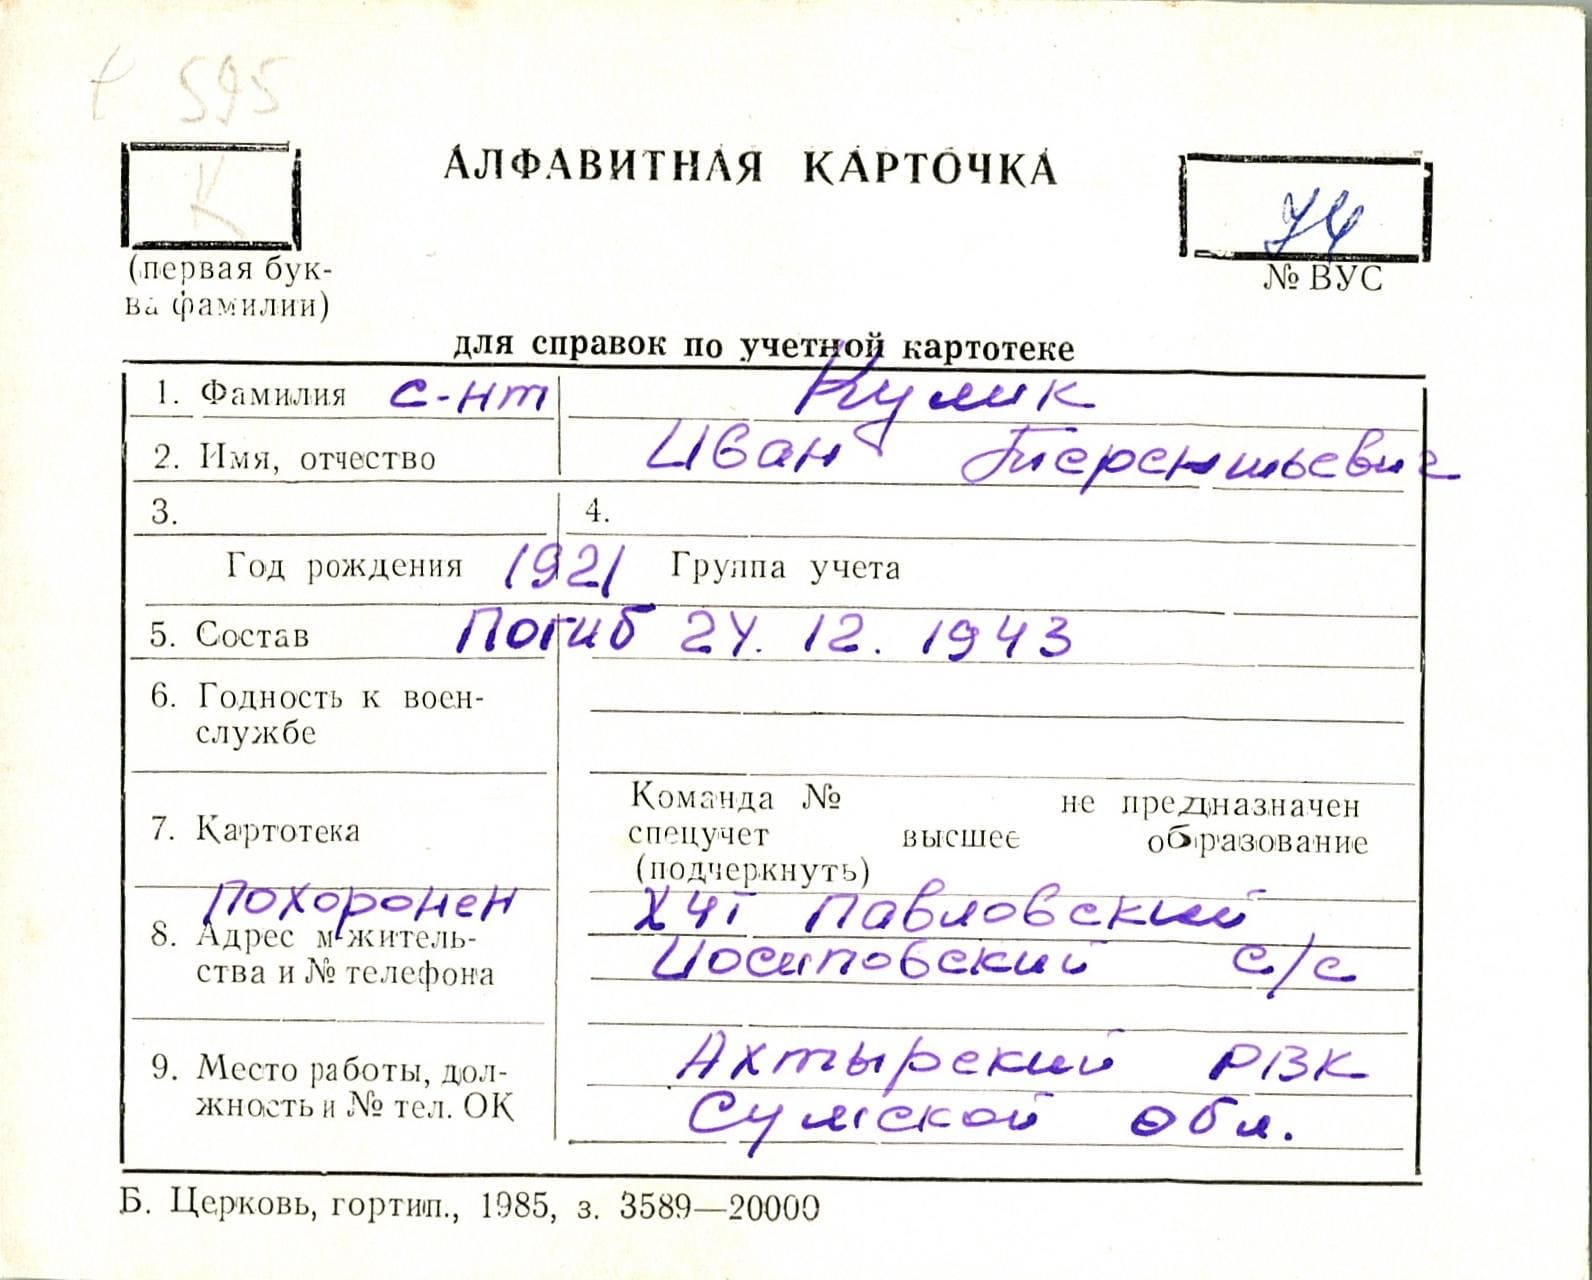 t 595
К
АЛФАВИТНАЯ КАРТОЧКА
74
(первая бук-
ва фамилии)
№ ВУС
для справок по учетной картотеке
1. Фамилия с-нт Кулик
2. Имя, отчество Иван Терентьевич
3. 4.
Год рождения 1921 Группа учета
5. Состав Погиб 24. 12. 1943
6. Годность к воен-
службе
Команда № не предназначен
7. Картотека спецучет высшее образование
(подчеркнуть)
Похоронен Хут Павловский
8. Адрес м-житель- Иосиповский с/с
ства и № телефона
9. Место работы, дол- Ахтырский РВК
жность и № тел. ОК Сумской обл.
Б. Церковь, гортип., 1985, з. 3589—20000